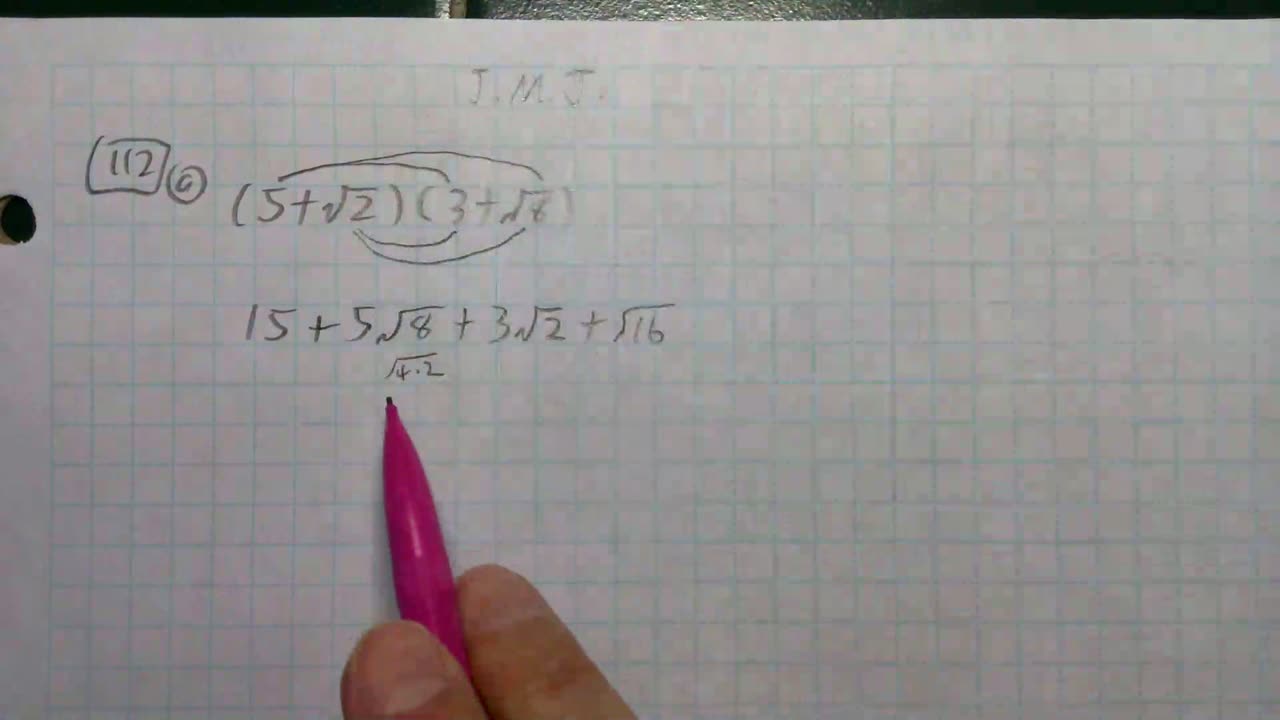 J.M.J.
112 6 (5+√2)(3+√8)
15+5√8+3√2+√16
√4·2